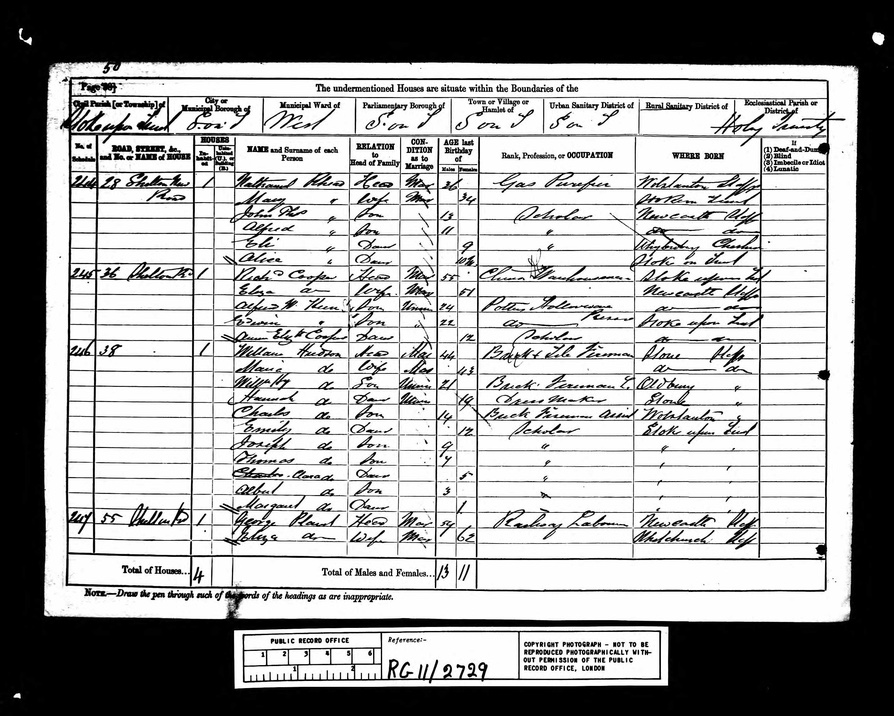 50
Page 49]
The undermentioned Houses are situate within the Boundaries of the
Civil Parish [or Township] of
City or Municipal Borough of
Municipal Ward of
Parliamentary Borough of
Town or Village or Hamlet of
Urban Sanitary District of
Rural Sanitary District of
Ecclesiastical Parish or District of
Stoke upon Trent S on T West S on T S on T S on T Holy Trinity
No. of Schedule
ROAD, STREET, &c., and No. or NAME of HOUSE
HOUSES
Inhabited
Uninhabited (U.), or Building (B.)
NAME and Surname of each Person
RELATION to Head of Family
CONDITION as to Marriage
AGE last Birthday of
Males Females
Rank, Profession, or OCCUPATION
WHERE BORN
If
(1) Deaf-and-Dumb
(2) Blind
(3) Imbecile or Idiot
(4) Lunatic
244 28 Shelton New 1 Head Mar 36 Gas Purifier Wolstanton Staffs
Road Mary " Wife Mar 34 Stoke on Trent
John Thos " Son 13 Scholar Newcastle Staffs
Alfred " Son 11 " do do
" Daur 9 " Cheshire
Alice " Daur Stoke on Trent
245 36 Shelton 1 Richd Cooper Head Mar 55 China Warehouseman Stoke upon Trent
Eliza do Wife Mar 51 Newcastle Staffs
Alfred W. Son Unm 24 Potters do do
Edwin " Son 22 do Stoke upon Trent
Cooper Daur 12 Scholar do do
246 38 1 William Hudson Head Mar 44 Brick & Tile Fireman Stone Staffs
do Wife Mar 43 do do
Willm Hy do Son Unm 21 Brick Fireman Oldbury "
Hannah do Daur Unm 19 Dress Maker Stone "
Charles do Son 14 Brick Fireman Assist Wolstanton "
Emily do Daur 12 Scholar Stoke upon Trent
Joseph do Son 9 " " "
Thomas do Son 7 " " "
Clara do Daur 5 " " "
Albert do Son 3 " " "
Margaret do Daur 1 " "
247 55 Shelton 1 George Head Mar 59 Railway Labourer Newcastle Staffs
Eliza do Wife Mar 62 Staffs
Total of Houses... 4
Total of Males and Females... 13 11
NOTE.—Draw the pen through such of the words of the headings as are inappropriate.
PUBLIC RECORD OFFICE
1 2 3 4 5 6
1 2
Reference:-
RG 11/2729
COPYRIGHT PHOTOGRAPH - NOT TO BE
REPRODUCED PHOTOGRAPHICALLY WITH-
OUT PERMISSION OF THE PUBLIC
RECORD OFFICE, LONDON